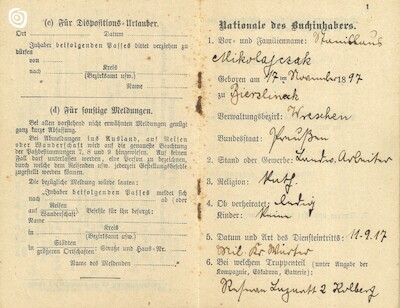 (c) Für Dispositions-Urlauber.
Ort Datum
Inhaber beifolgenden Passes bittet verziehen zu
dürfen
nach
Kreis
(Bezirksamt usw.)
Name
(d) Für sonstige Meldungen.
Bei allen vorstehend nicht erwähnten Meldungen genügt
ganz kurze Abfassung.
Bei Abmeldungen ins Ausland, auf Reisen
oder Wanderschaft wird auf die genaueste Beachtung
der Paßbestimmungen 7, 8 und 9 hingewiesen. Auf keinen
Fall darf unterlassen werden, eine Person zu bezeichnen,
durch welche den Meldenden ein etwaiger Gestellungsbefehl
jederzeit zugestellt werden kann.
Die bezügliche Meldung würde lauten:
„Inhaber beifolgenden Passes meldet sich
nach ab (oder
auf
Reisen
Wanderschaft
) Befehle für ihn besorgt:
Name
in
Kreis
(Bezirksamt usw.)
in
Städten
größeren Ortschaften
Straße und Haus-Nr.
Name des Meldenden
1
Nationale des Buchinhabers.
1. Vor- und Familienname: Stanislaus
Mikolajczak
Geboren am 17ten November 1897
zu
Verwaltungsbezirk: Wreschen
Bundesstaat: Preußen
2. Stand oder Gewerbe: Landw. Arbeiter
3. Religion: Kath.
4. Ob verheiratet: ledig
Kinder: Keine
5. Datum und Art des Diensteintritts: 11.9.17
Mil Kr Wärter
6. Bei welchem Truppenteil (unter Angabe der
Kompagnie, Eskadron, Batterie):
Reserve Lazarett 2 Kolberg